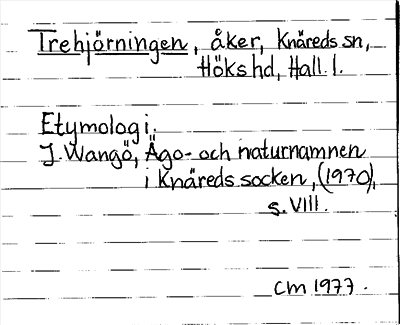 Trehjörningen, åker, Knäreds sn,
Höks hd, Hall. l.
Etymologi.
J. Wangö, Ägo- och naturnamnen
i Knäreds socken, (1970),
s. VIII.
CM 1977.